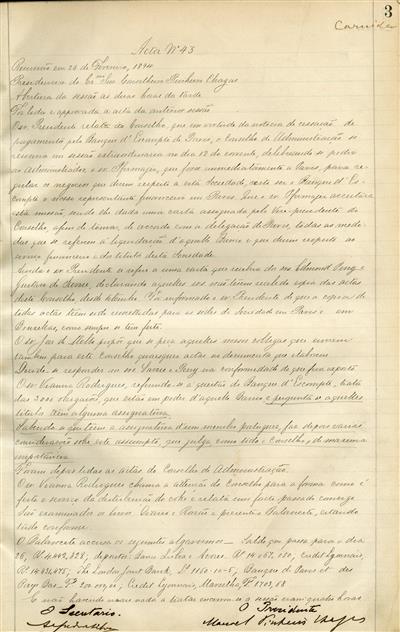 3
Carnide
Acta Nº 43
Reunião em 26 de Fevereiro, 1894
Presidencia do Exmo Snr Conselheiro Pinheiro Chagas
Abertura da sessão ás duas horas da tarde
Foi lida e approvada a acta da anterior sessão
O snr Presidente relata ao Conselho, que em virtude da noticia de cessação de
pagamento pelo Banque d'Escompte de Paris, o Conselho de Administração se
reunira em sessão extraordinaria no dia 12 do corrente, deliberando se pedir
ao Administrador o snr que fosse immediatamente a Paris, para re-
gular os negocios que dizem respeito a esta Sociedade, visto ser o Banque d'Es-
compte o nosso representante financeiro em Paris. Que o snr acceitara
esta missão, sendo lhe dada uma carta assignada pelo Vice-presidente do
Conselho, afim de tomar, de accordo com a delegação de Paris, todas as medi-
das que se referem á liquidação d'aquelle Banco e que dizem respeito ao
serviço financeiro e dos titulos desta Sociedade.
o snr Presidente a uma carta que recebera dos snrs Edmond
Gustave de declarando aquelles snrs não terem recebido copia das actas
deste Conselho desde Foi informado o snr Presidente de que a copia de
todas actas têem sido remettidas para as sédes da Sociedade em Paris e em
Bruxellas, como sempre se tem feito.
O snr Jose de Mello propôz que se peça aquelles nossos collegas que enviem
tambem para este Conselho quaesquer actas ou documentos que elaborem
Decide-se responder ao snr e na conformidade do que fica exposto
O snr Vianna Rodrigues, referindo-se a questão do Banque d'Escompte, trata
das 2001 obrigações, que estão em poder d'aquelle Banco e pergunta se aquelles
titulos têem alguma assignatura.
Sabendo q̃ só têem a assignatura d'um membro portuguez, faz depois varias
considerações sobre este assumpto, que julga como todo o Conselho, de maxima
importancia.
Foram depois lidas as actas do Conselho de Administração.
O snr Vianna Rodrigues chama a attenção do Conselho para a forma como é
feito o serviço da distribuição do coke e relata um facto passado comsigo
São examinados os livros Diario e Razão e presente o Balancete, estando
tudo conforme.
O Balancete accusa os seguintes algarismos: — Saldo que passa para o dia
26, Rs 4.442,328; depositos: Banco Lisboa e Açores, Rs 14.067,120; Credit Lyonnais,
Rs 14.831,475; The London Joint Bank, £ 1160-10-5; Banque de Paris et des
Pays Bas, Credit Lyonnais, Marselha,
E não havendo mais nada a tratar encerrou-se a sessão eram quatro horas
O Secretario. O Presidente
Manoel Pinheiro Chagas